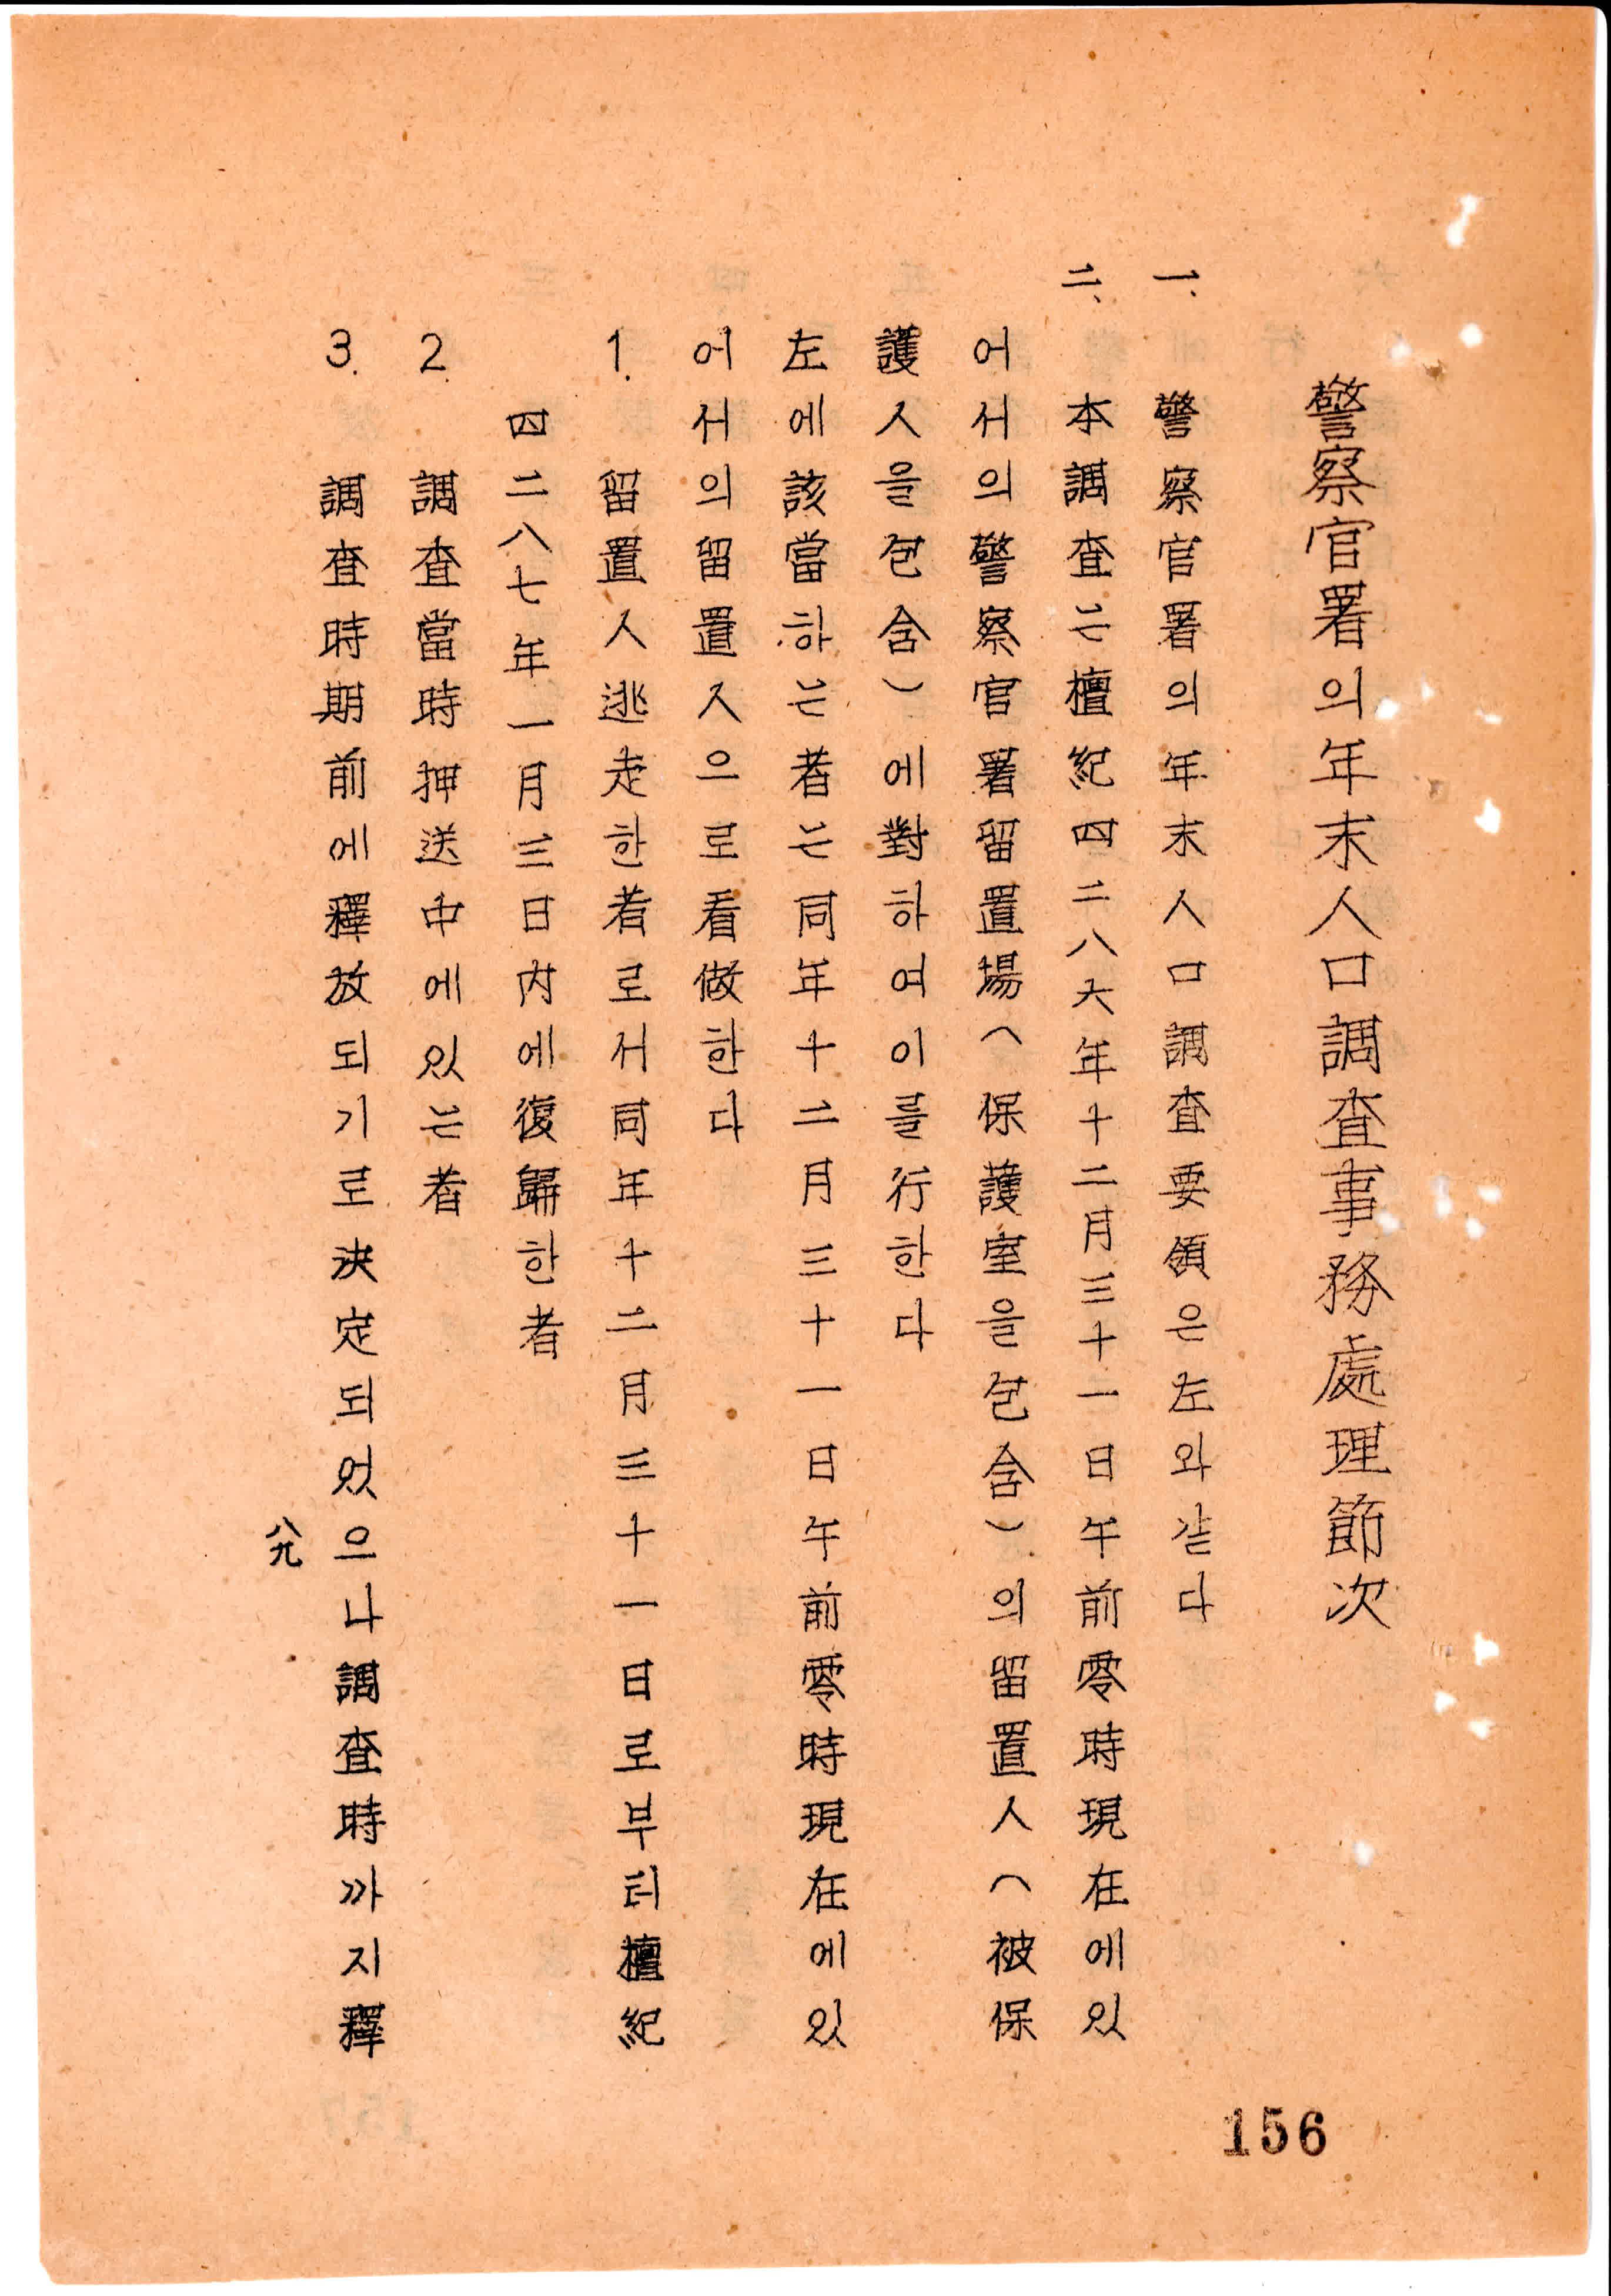 警察官署의年末人口調査事務處理節次
一、警察官署의年末人口調査要領은左와같다
二、本調査는檀紀四二八六年十二月三十一日午前零時現在에있
어서의警察官署留置場(保護室을包含)의留置人(被保
護人을包含)에對하여이를行한다
左에該當하는者는同年十二月三十一日午前零時現在에있
어서의留置人으로看做한다
1. 留置人逃走한者로서同年十二月三十一日로부터檀紀
四二八七年一月三日內에復歸한者
2. 調査當時押送中에있는者
3. 調査時期前에釋放되기로決定되었으나調査時까지釋
八九
156